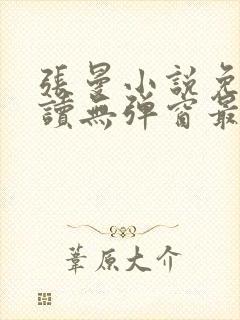 張曼小說免
讀無彈窗最
葦原大介